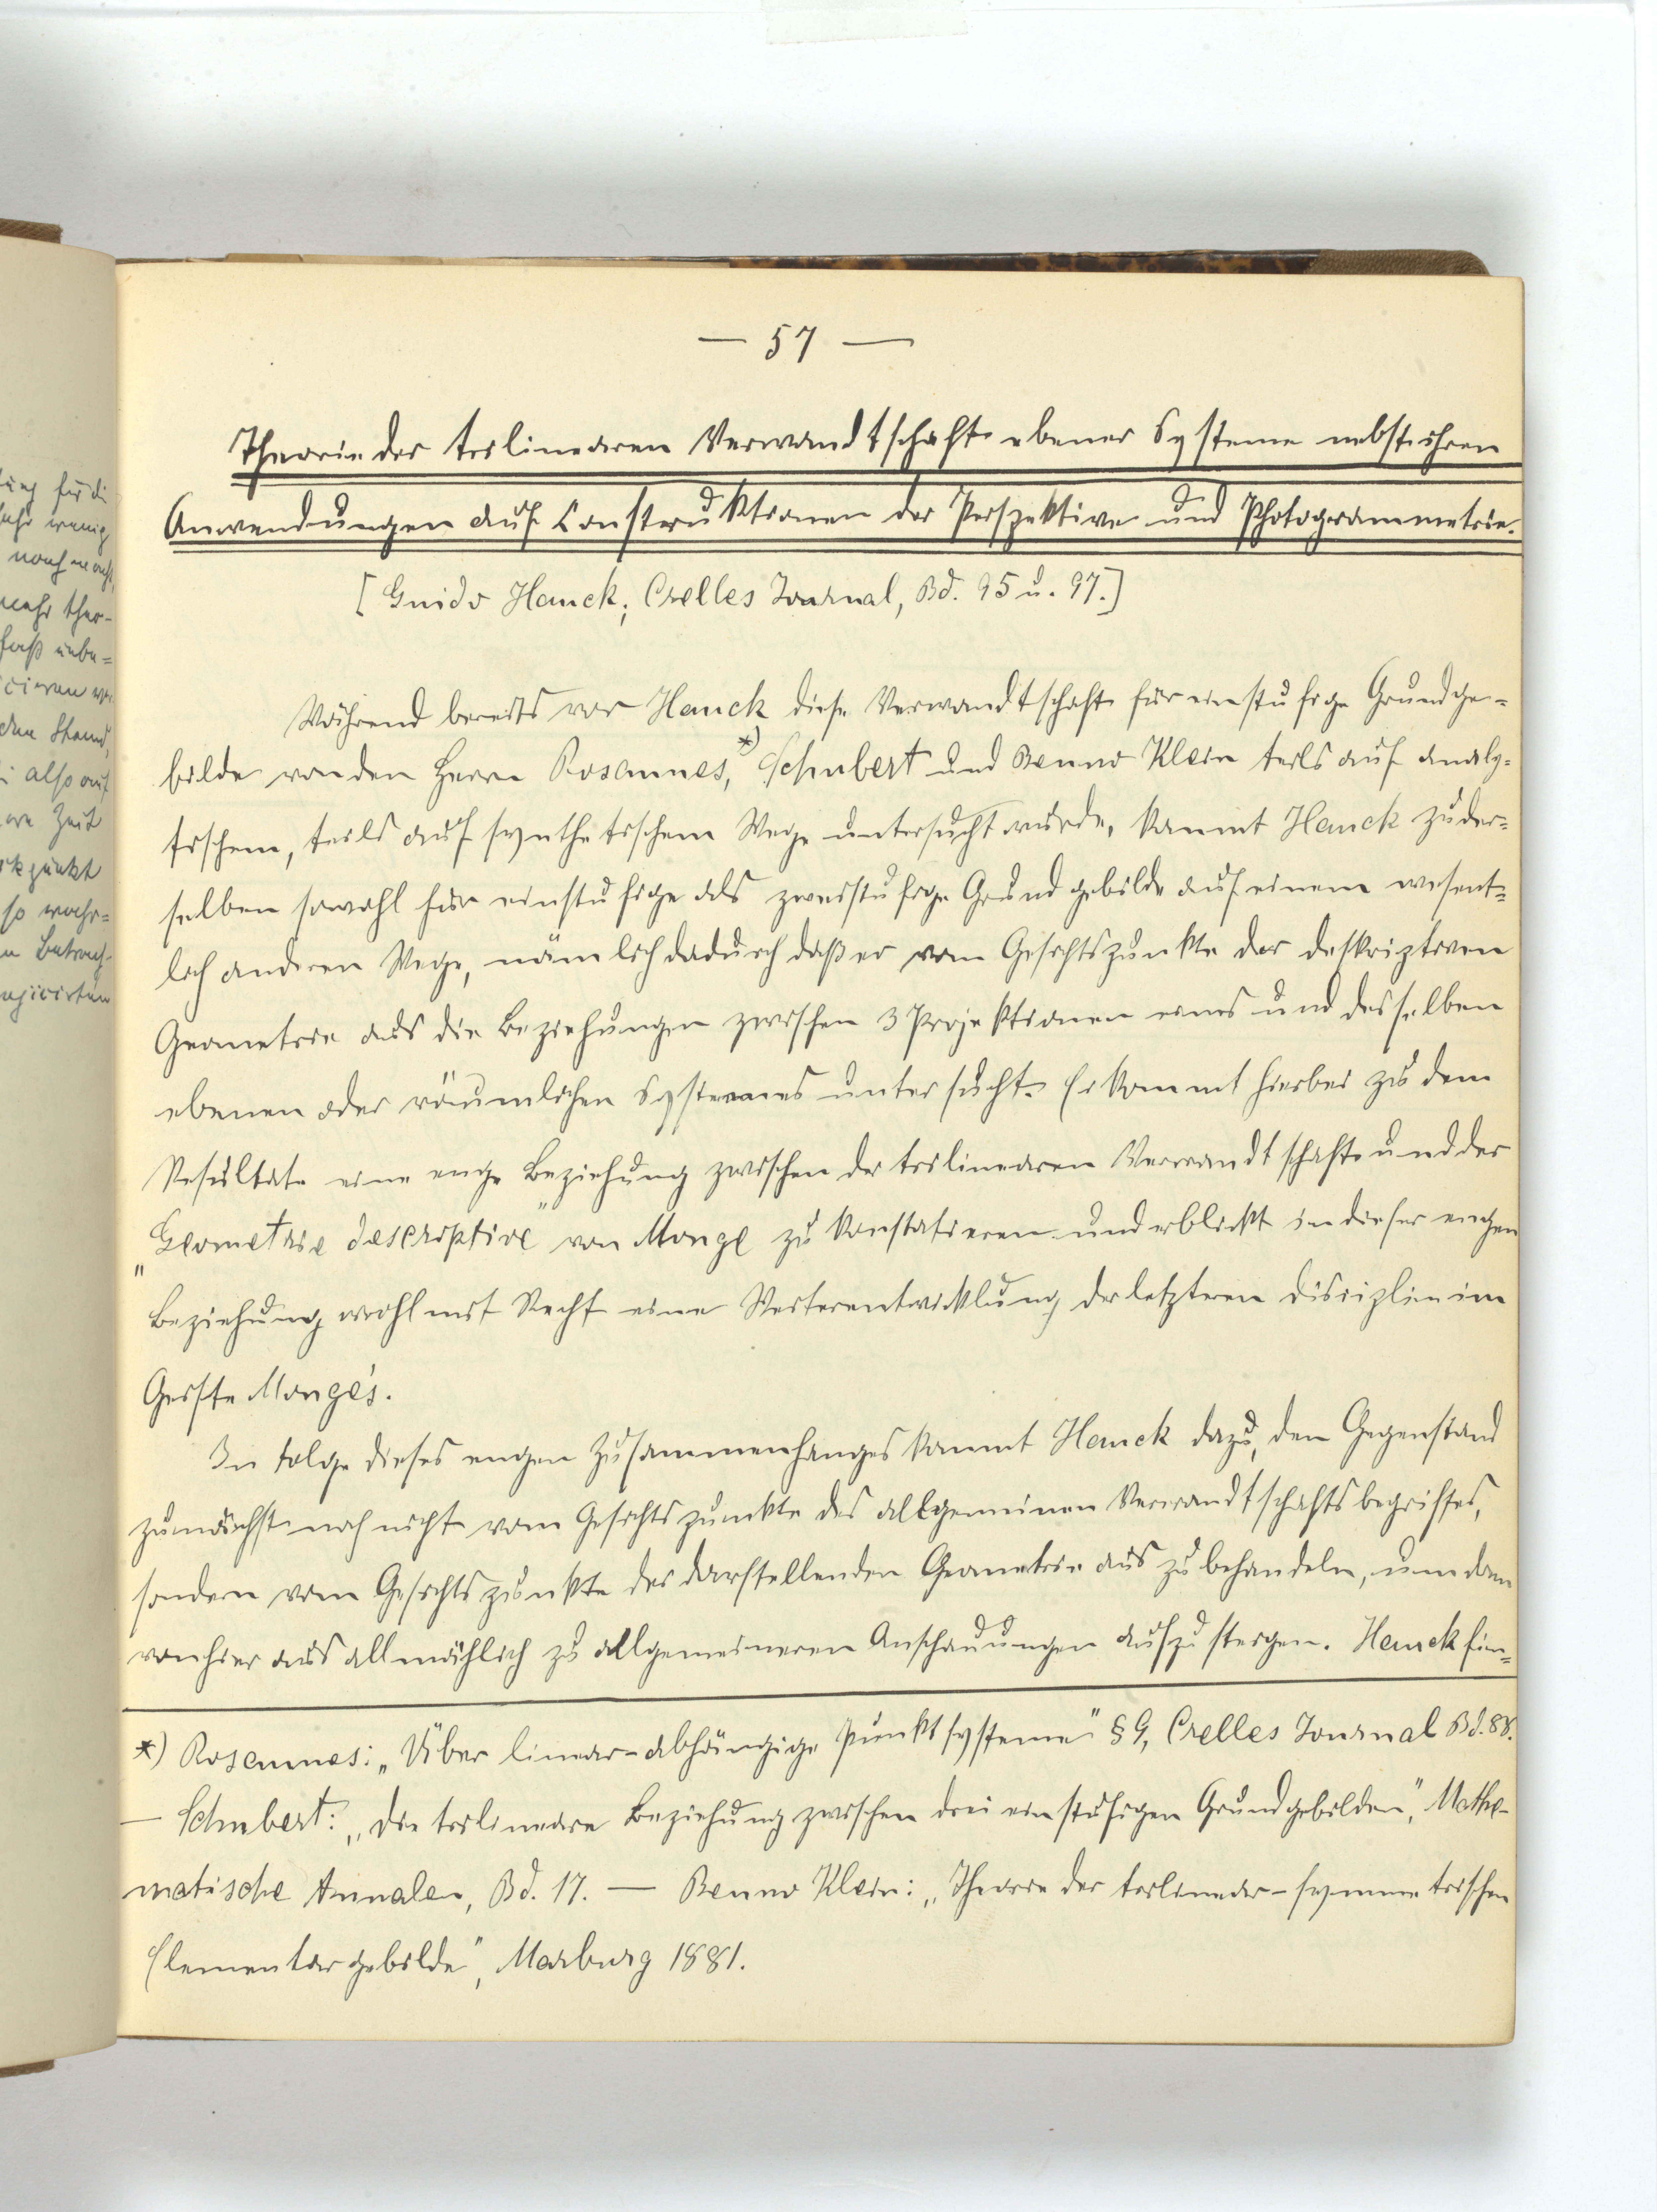 — 57 —
Theorie der trilinearen Verwandtschaft ebener Systeme nebst ihren
Anwendungen auf Construktionen der Perspektive und Photogrammetrie.
[Guido Hauck; Crelles Journal, Bd. 95 u. 97.]
Während bereits vor Hauck diese Verwandtschaft für einstufige Grundge=
bilde von den Herrn Rosannes,*) Schubert und Benno Klein teils auf analy=
tischem, teils auf synthetischem Wege untersucht wurde, kommt Hauck zu der=
selben sowohl für einstufige als zweistufige Grundgebilde auf einem wesent=
lich anderen Wege, nämlich dadurch daß er vom Gesichtspunkte der deskriptiven
Geometrie aus die Beziehungen zwischen 3 Projektionen eines und desselben
ebenen oder räumlichen Systemes untersucht. Er kommt hierbei zu dem
Resultate eine enge Beziehung zwischen der trilinearen Verwandtschaft und der
„Geometrie descriptive" von Monge zu konstatieren und erblickt in dieser engen
Beziehung wohl mit Recht eine Weiterentwicklung der letzteren Disciplin im
Geiste Monge's.
In Folge dieses engen Zusammenhanges kommt Hauck dazu, den Gegenstand
zunächst noch nicht vom Gesichtspunkte des allgemeinen Verwandtschaftsbegriffes,
sondern vom Gesichtspunkte der darstellenden Geometrie aus zu behandeln, um dann
von hier aus allmählich zu allgemeineren Anschauungen aufzusteigen. Hauck fin=
*) Rosannes: „Über linear-abhängige Punktsysteme" § 9, Crelles Journal Bd. 88.
— Schubert: „Die trilineare Beziehung zwischen drei einstufigen Grundgebilden", Mathe-
matische Annalen, Bd. 17. — Benno Klein: „Theorie der trilinear-symmetrischen
Elementargebilde", Marburg 1881.